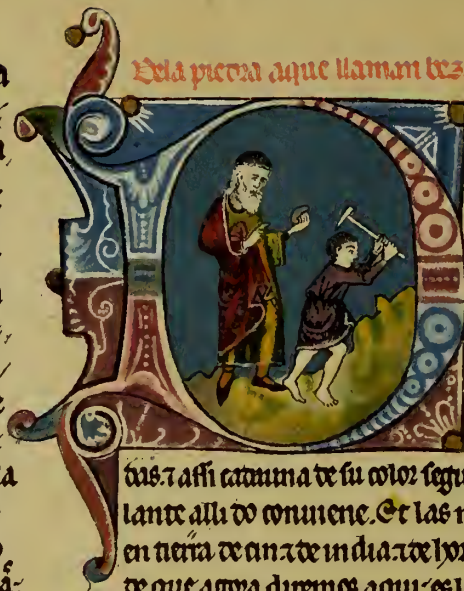 Dela piedra aque llaman bez
das. ⁊ assi camina de su color segu
lante alli do conuiene. Et las
en tierra de cin ⁊ de india ⁊ de
de que agora diremos aqui es